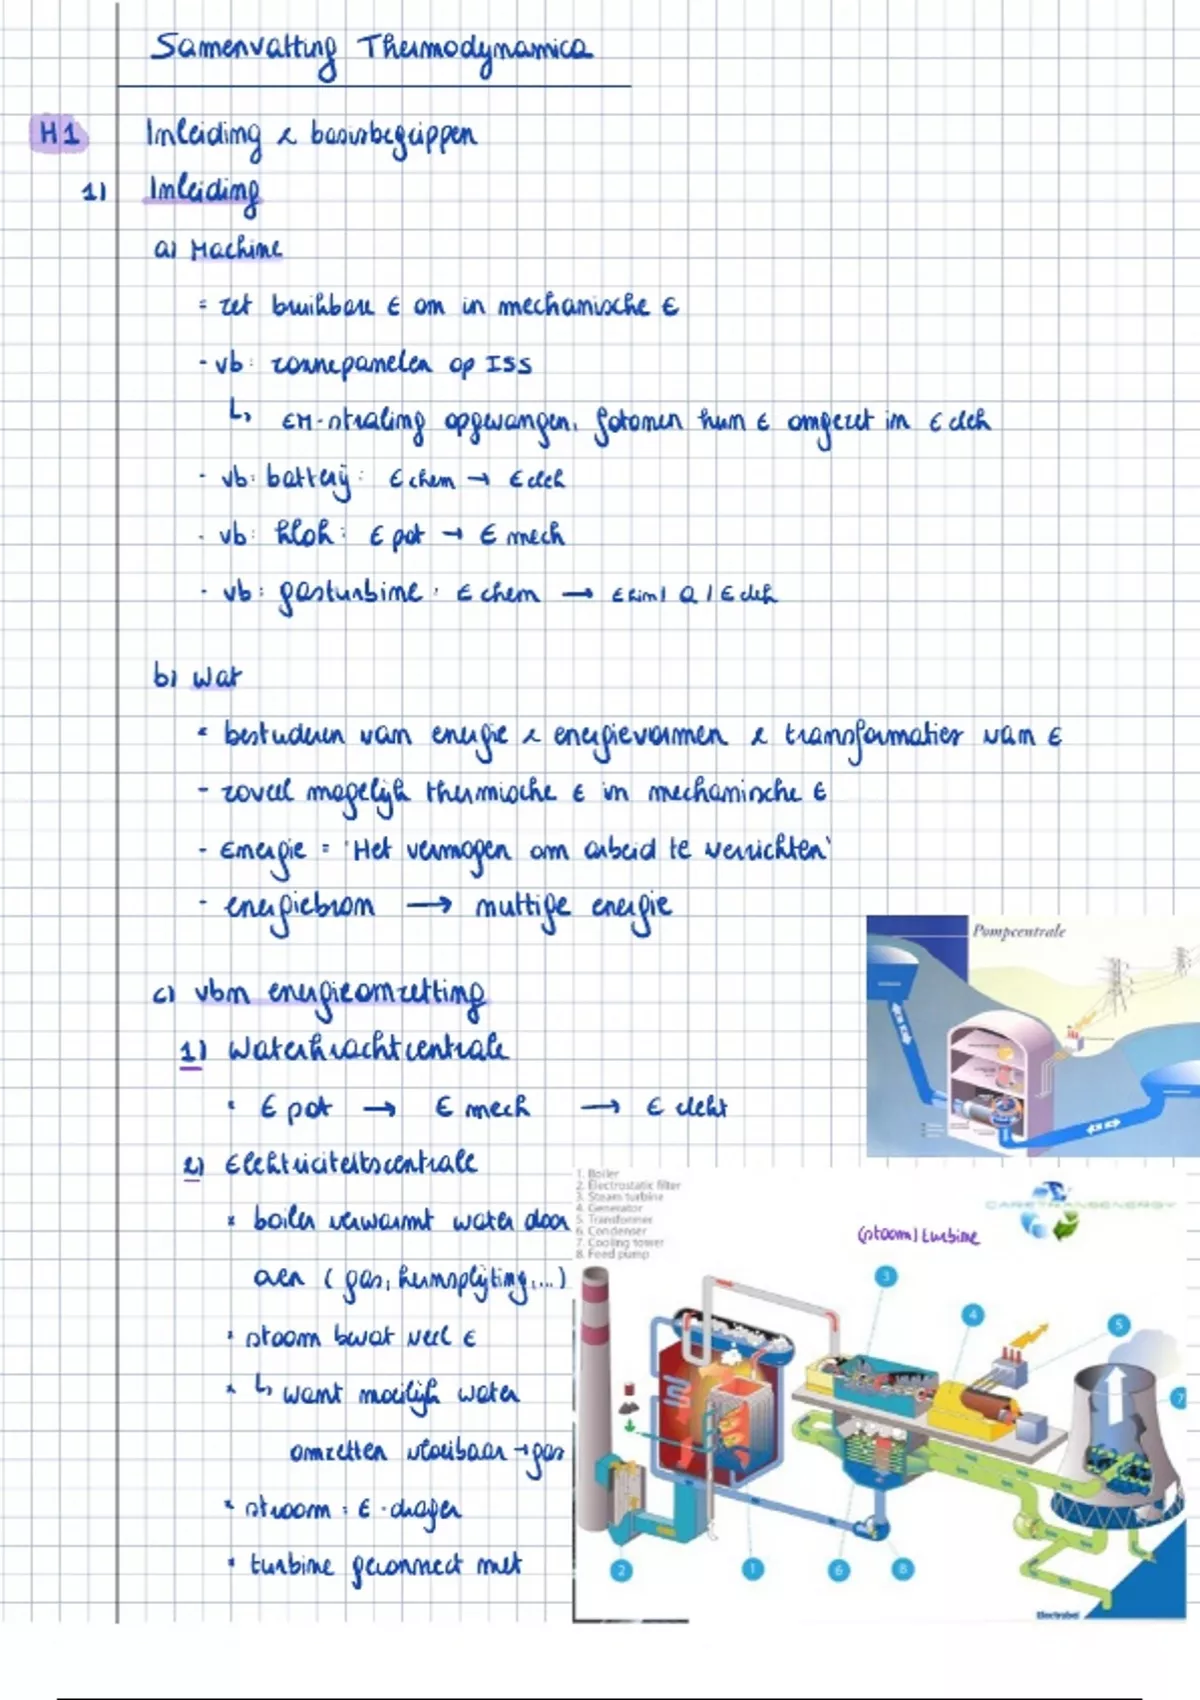 Samenvatting Thermodynamica
H1 Inleiding & basisbegrippen
1) Inleiding
a) Machine
= zet bruikbare E om in mechanische E
- vb: zonnepanelen op ISS
↳ EM-straling opgevangen, fotonen hun E omgezet in E elek
- vb: batterij: E chem → E elek
- vb: klok: E pot → E mech
- vb: gasturbine: E chem → E kin / Q / E elek
b) Wat
= bestuderen van energie & energievormen & transformaties van E
- zoveel mogelijk thermische E in mechanische E
- Energie = 'Het vermogen om arbeid te verrichten'
- energiebron → nuttige energie
Pompcentrale
c) vbn energieomzetting
1) Waterkrachtcentrale
• E pot → E mech → E elekt
2) Elektriciteitscentrale
1. Boiler
2. Electrostatic filter
3. Steam turbine
4. Generator
5. Transformer
6. Condenser
7. Cooling tower
8. Feed pump
CARETRANSENERGY
(stoom) turbine
• boiler verwarmt water door
aen (gas, kernsplijting,...)
• stoom bevat veel E
• ↳ want moeilijk water
omzetten vloeibaar → gas
• stroom = E-drager
• turbine geconnect met
3
4
5
7
2
1
6
8
Electrabel